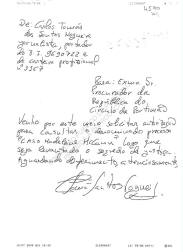 De: Carlos Tomás
dos Santos Nogueira
jornalista, portador
do B.I. 9690722 e
da carteira profissional
nº 3957
Para: Exmo Sr.
Procurador da
República do
Círculo de Portimão
Venho por este meio solicitar autorização
para consultar o denominado processo
"Caso Madeleine McCann" logo que
seja levantado o segredo de justiça.
Aguardando deferimento, atenciosamente